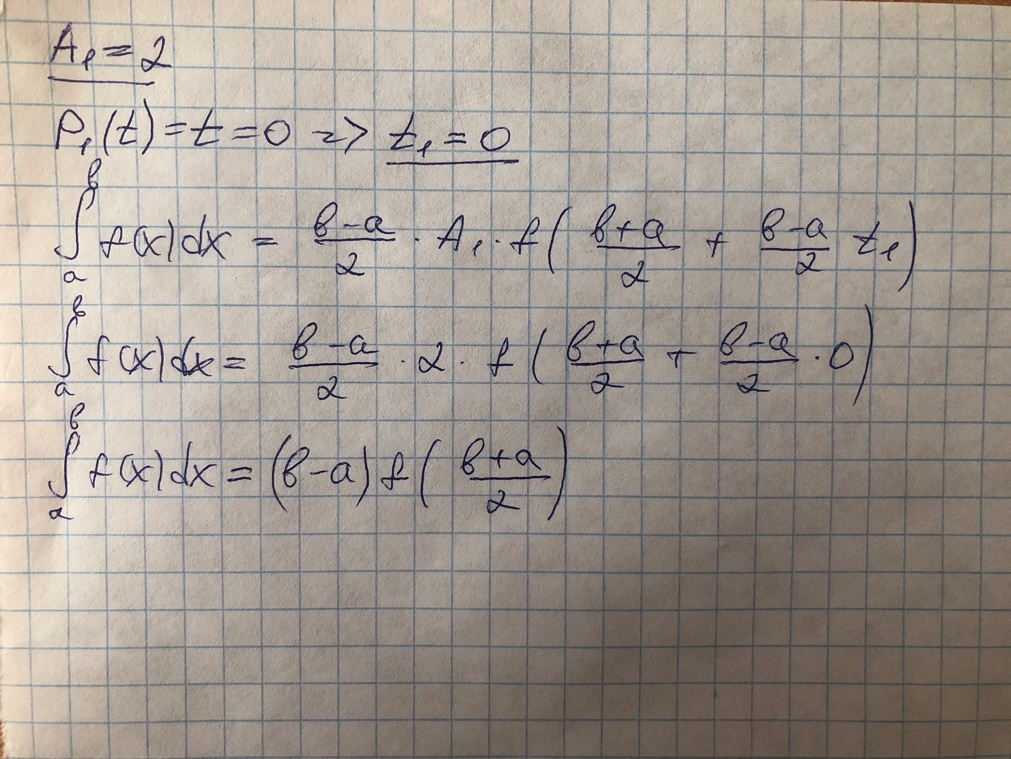 A₁ = 2
P₁(t) = t = 0 => t₁ = 0
∫ₐᵇ f(x)dx = (b-a)/2 · A₁ · f( (b+a)/2 + (b-a)/2 t₁ )
∫ₐᵇ f(x)dx = (b-a)/2 · 2 · f( (b+a)/2 + (b-a)/2 · 0 )
∫ₐᵇ f(x)dx = (b-a) f( (b+a)/2 )